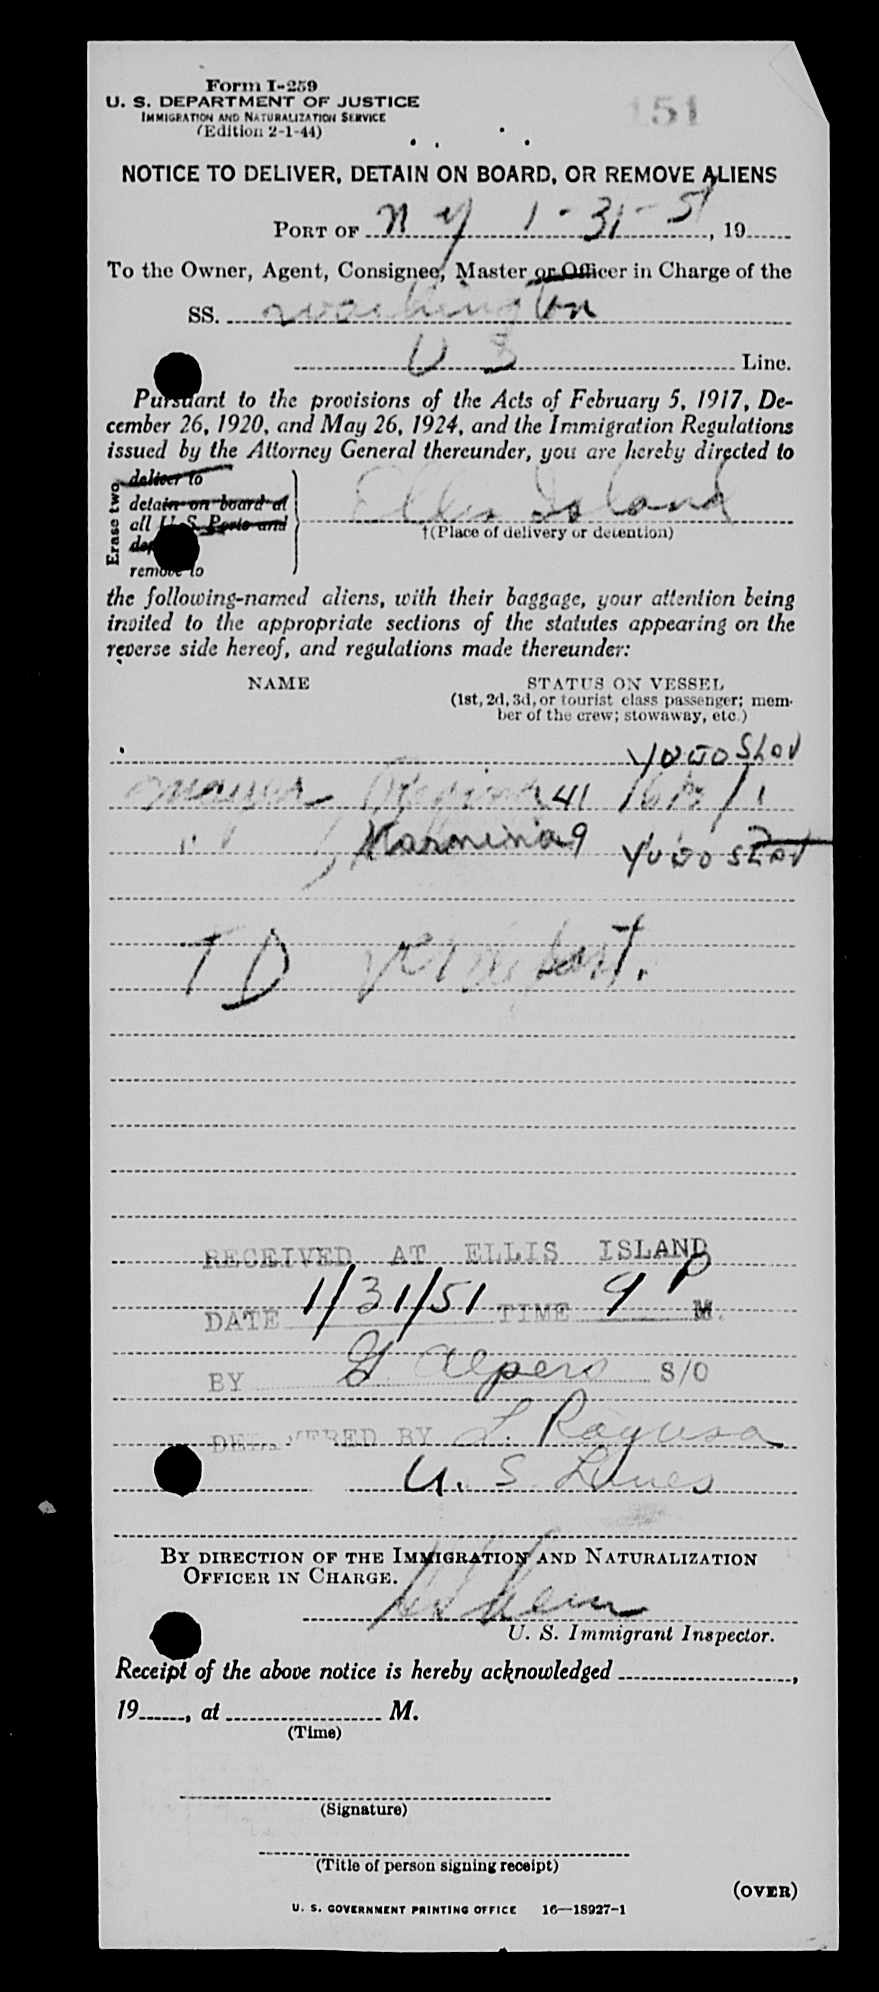 Form I-259
U. S. DEPARTMENT OF JUSTICE
IMMIGRATION AND NATURALIZATION SERVICE
(Edition 2-1-44)
151
NOTICE TO DELIVER, DETAIN ON BOARD, OR REMOVE ALIENS
PORT OF N Y 1-31-51, 19
To the Owner, Agent, Consignee, Master or Officer in Charge of the
SS. Washington
U S Line.
Pursuant to the provisions of the Acts of February 5, 1917, De-
cember 26, 1920, and May 26, 1924, and the Immigration Regulations
issued by the Attorney General thereunder, you are hereby directed to
Erase two
deliver to
detain on board at
all U. S. Ports and
remove to
Ellis Island
†(Place of delivery or detention)
the following-named aliens, with their baggage, your attention being
invited to the appropriate sections of the statutes appearing on the
reverse side hereof, and regulations made thereunder:
NAME STATUS ON VESSEL
(1st, 2d, 3d, or tourist class passenger; mem-
ber of the crew; stowaway, etc.)
YUGO SLAV
41
9 YUGO SLAV
T D
RECEIVED AT ELLIS ISLAND
DATE 1/31/51 TIME 9 P M.
BY G Alpers S/O
DELIVERED BY L. Ragusa
U. S. Lines
BY DIRECTION OF THE IMMIGRATION AND NATURALIZATION
OFFICER IN CHARGE.
U. S. Immigrant Inspector.
Receipt of the above notice is hereby acknowledged ,
19 , at M.
(Time)
(Signature)
(Title of person signing receipt)
(OVER)
U. S. GOVERNMENT PRINTING OFFICE 16—18927-1